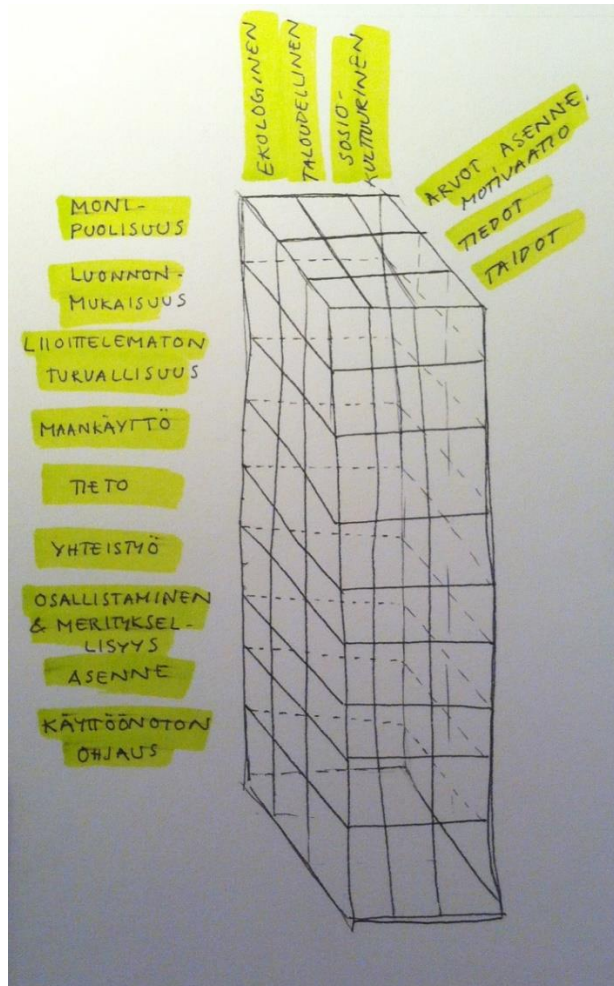 EKOLOGINEN
TALOUDELLINEN
SOSIO-
KULTTUURINEN
ARVOT, ASENNE,
MOTIVAATIO
TIEDOT
TAIDOT
MONI-
PUOLISUUS
LUONNON-
MUKAISUUS
LIIOITTELEMATON
TURVALLISUUS
MAANKÄYTTÖ
TIETO
YHTEISTYÖ
OSALLISTAMINEN
& MERITYKSEL-
LISYYS
ASENNE
KÄYTTÖÖNOTON
OHJAUS